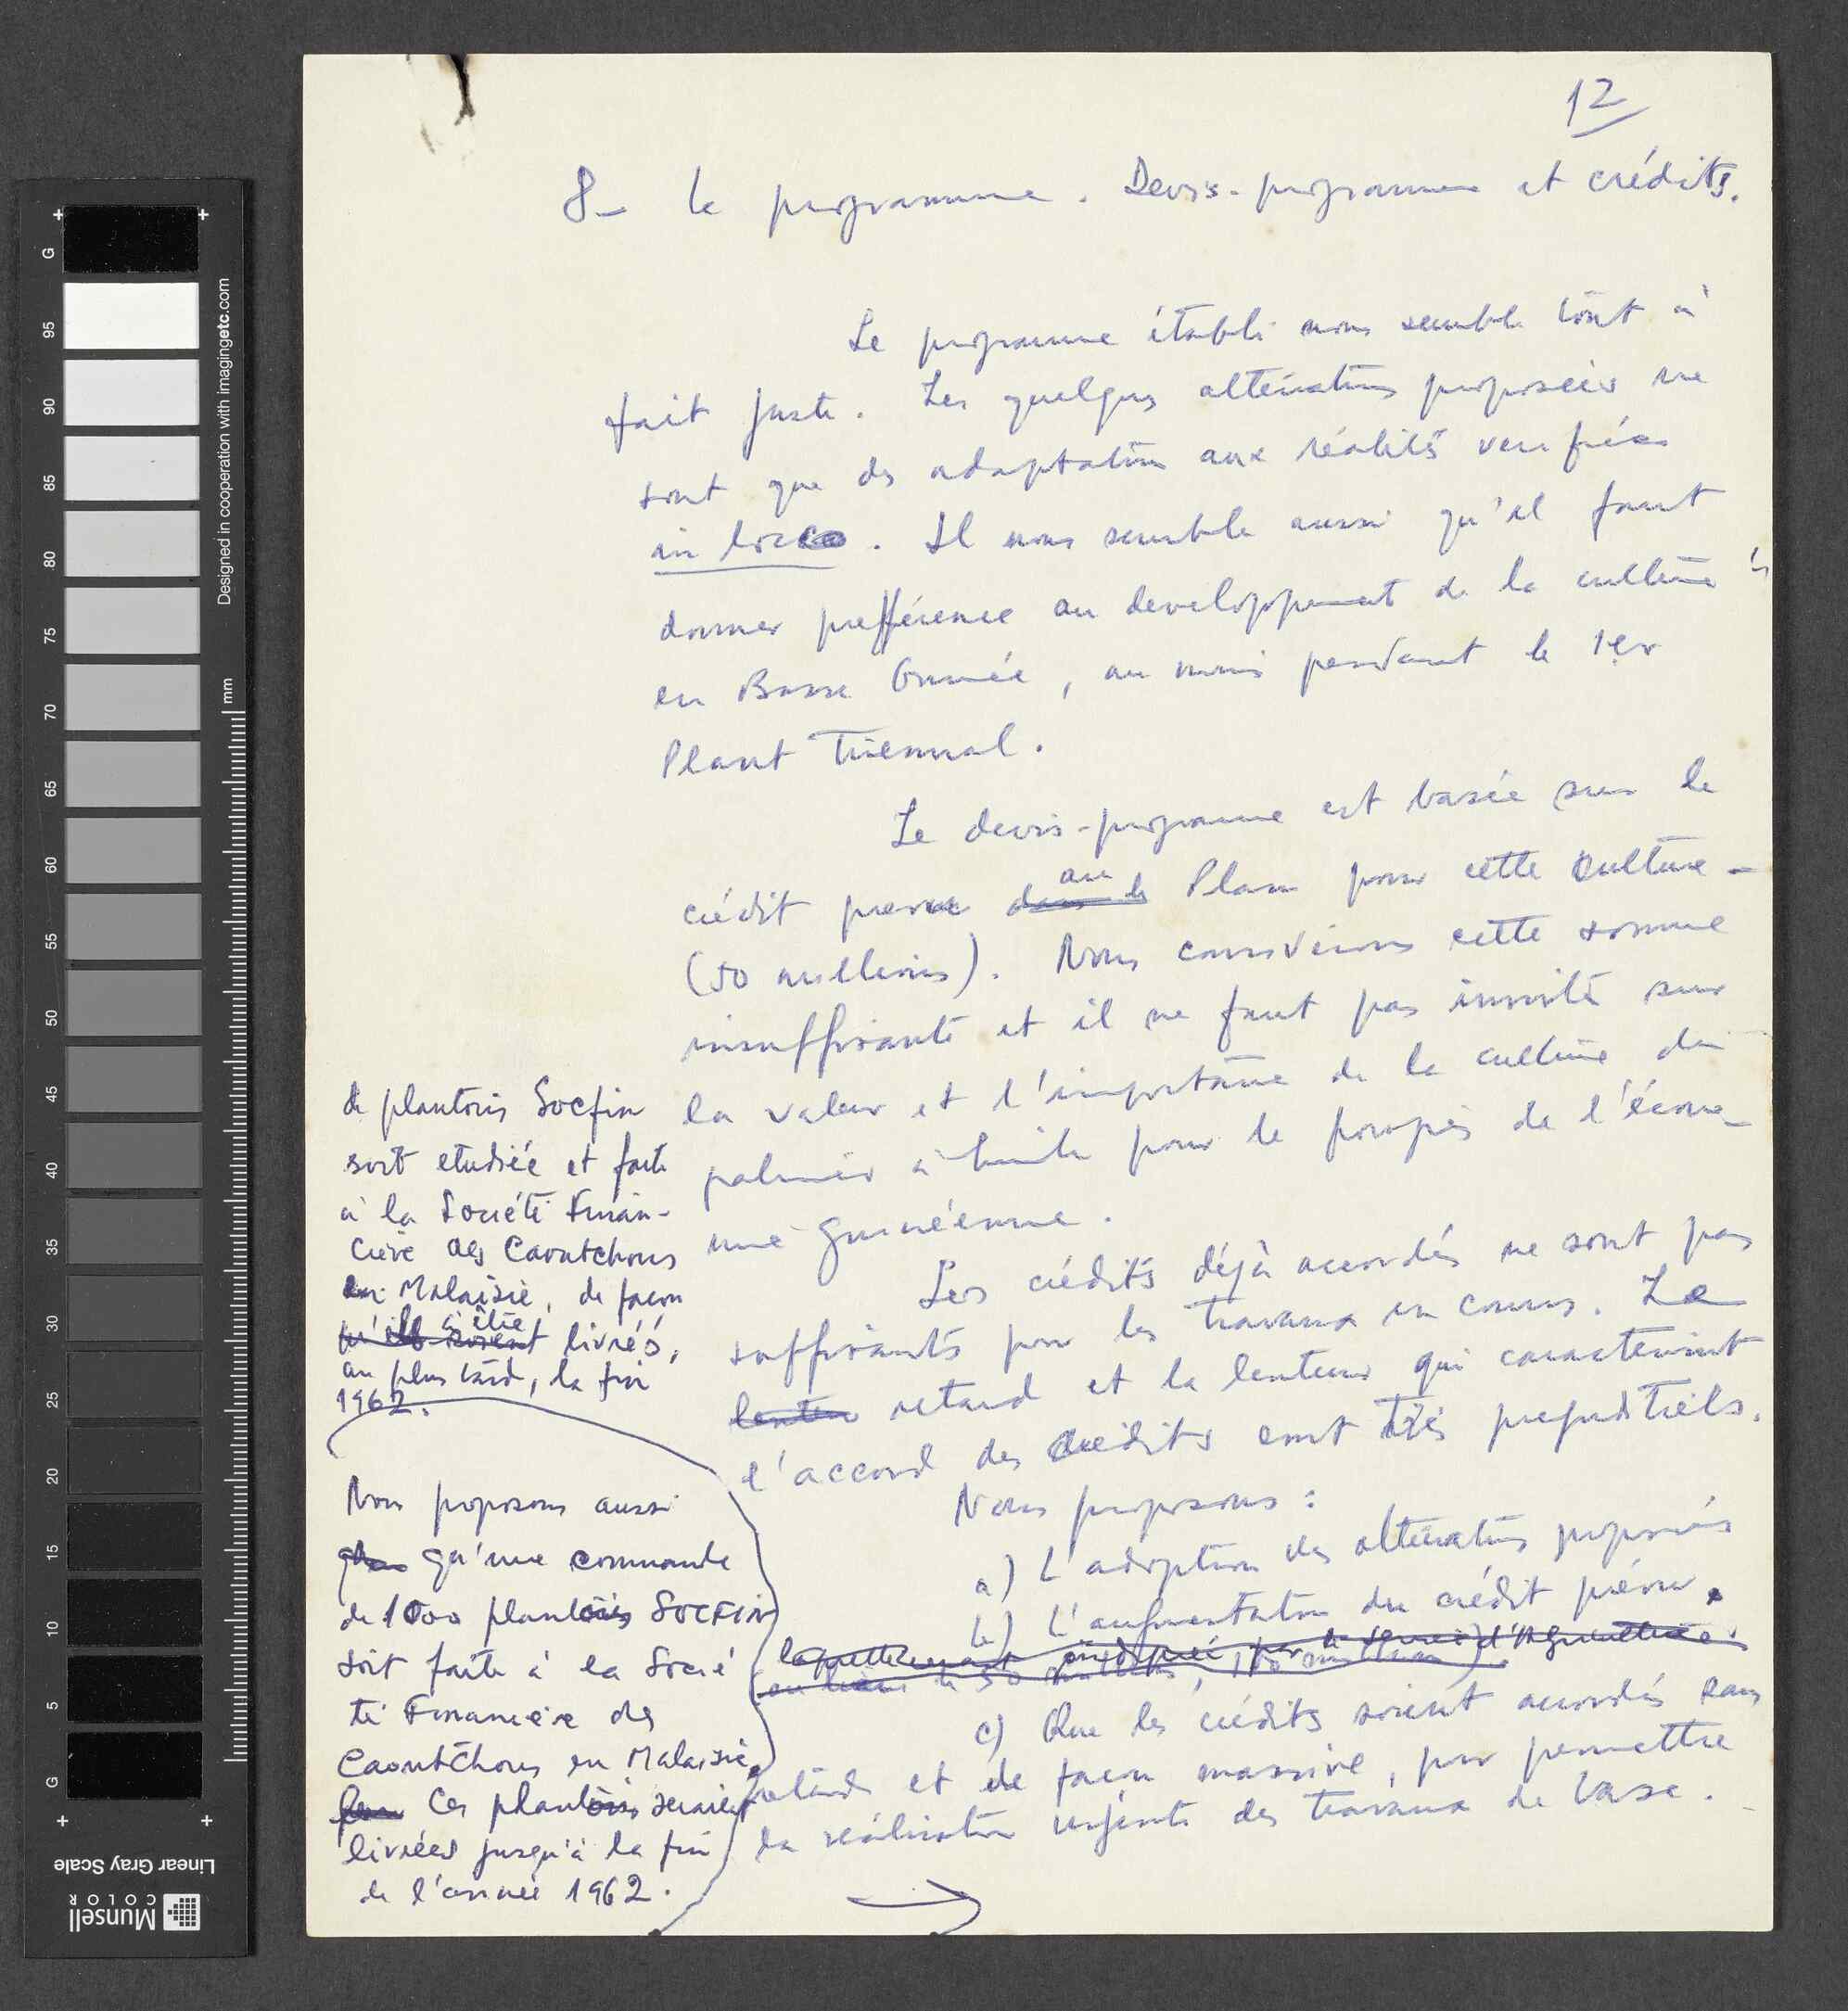 12
8- Le programme. Devis-programme et crédits.
Le programme établi nous semble tout à
fait juste. Les quelques altérations proposées ne
sont que des adaptations aux réalités verifiées
in loco. Il nous semble aussi qu'il faut
donner prefférence au developpement de la culture
en Basse Guinée, au moins pendant le 1er
Plant Triennal.
Le devis-programme est basée sur le
crédit prevu dans le au Plan pour cette culture -
(50 millions). Nous considérons cette somme
insuffisante et il ne faut pas insisté sur
la valeur et l'importance de la culture du
palmier à huile pour le progrès de l'écono-
mie guinéenne.
Les crédits déjà accordés ne sont pas
suffisants pour les travaux en cours. Le
lenteu retard et la lenteur qui caracterisent
l'accord des crédits sont très prejudtiels.
Nous proposons :
a) L'adoption des altérations proposées
b) L'augmentation du crédit prévu.
c) Que les crédits soient accordés sans
retards et de façon massive, pour permettre
la réalisation urgente des travaux de base.
de plantois Socfin
soit etudiée et faite
à la Société Finan-
cière des Caoutchous
en Malaisie, de façon
qu'ils soient à être livrés,
au plus tard, la fin
1962.
Nous proposons aussi
qu'une commande
de 1000 plantois SOCFIN
soit faite à la Socié
té Financière des
Caoutchous en Malaisie.
Ces plantois seraient
livrées jusqu'à la fin
de l'année 1962.
G
95
90
85
80
75
70
65
60
55
50
45
40
35
30
25
20
15
10
5
G
mm
Designed in cooperation with imagingetc.com
Linear Gray Scale
Munsell
COLOR